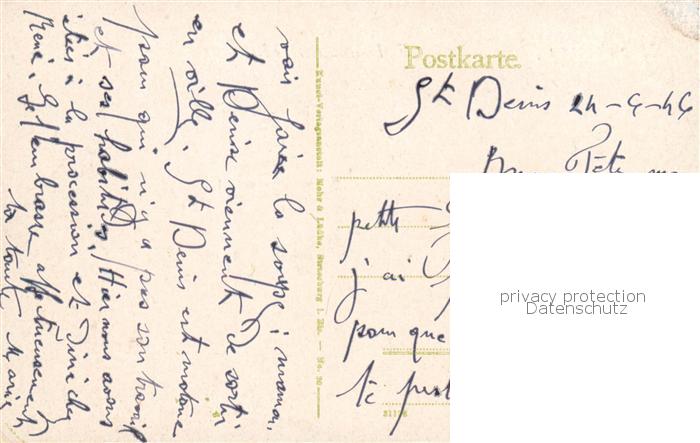 Postkarte.
St Denis 24-6-46
Bne Fête ma
petite
j'ai
pour que
te prés
privacy protection
Datenschutz
Kunst-Verlagsanstalt: Mohr & Lübke, Strassburg i. Els. — No.
vais faire la soupe; maman
et Denise viennent de sortir
en ville. St Denis est monotone
pour qui n'a pas son travail
et ses habitudes. Hier nous avons
à la procession et Diné chez
René. Je t'embrasse affectueusement
ta tante Marie